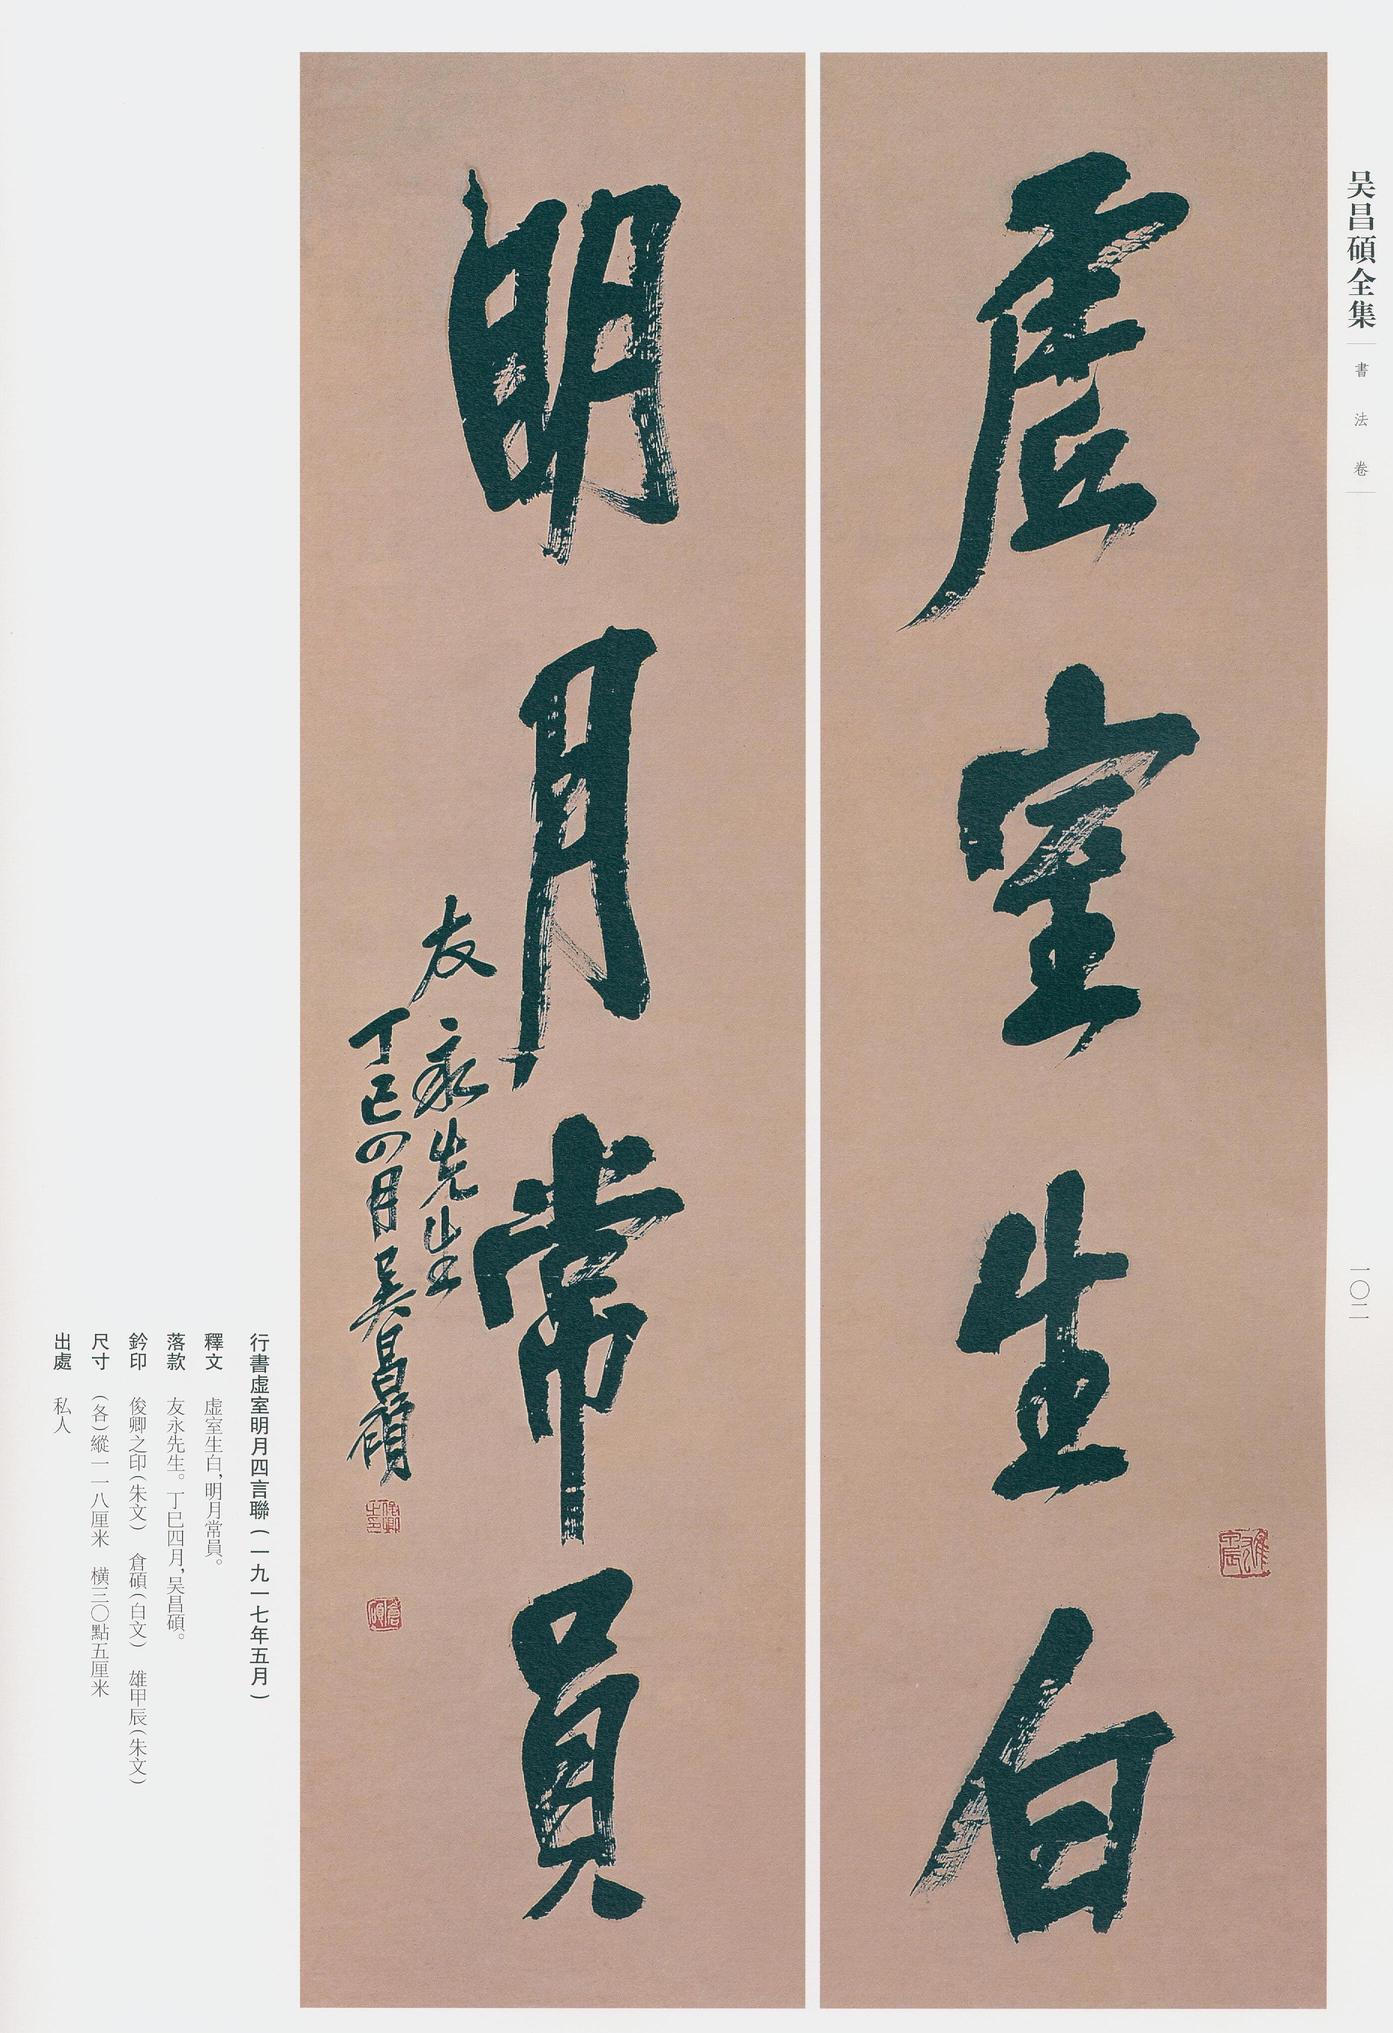 吴昌碩全集
書法卷
一〇二
虛室生白
雄甲辰
明月常員
友永先生
丁巳四月吴昌碩
俊卿之印
倉碩
行書虚室明月四言聯（一九一七年五月）
釋文　虚室生白，明月常員。
落款　友永先生。丁巳四月，吴昌碩。
鈐印　俊卿之印（朱文）　倉碩（白文）　雄甲辰（朱文）
尺寸　（各）縱一一八厘米　橫三〇點五厘米
出處　私人